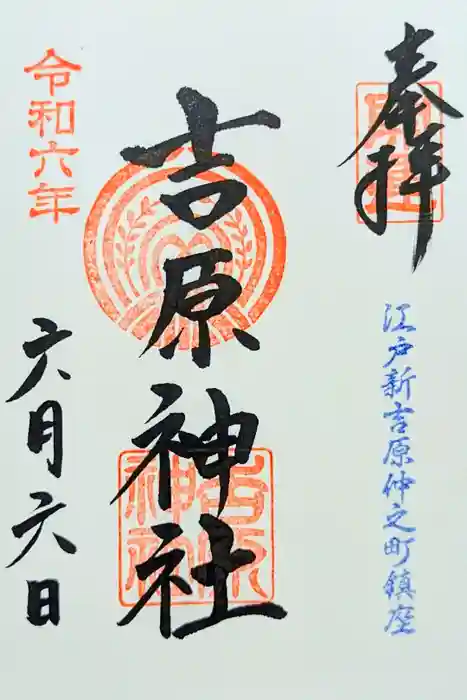 奉拝
江戸新吉原仲之町鎮座
吉原神社
吉原神社
令和六年
六月六日